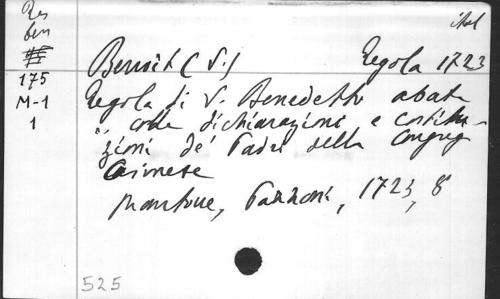 Res
ben
175
M-1
1
ital
Benoît (S.) Regola 1723
Regola di S. Benedetto abate
colle dichiarazioni e costitu-
zioni de' Padri della Congreg
Casinese
Mantoue, Pazzoni, 1723, 8
525